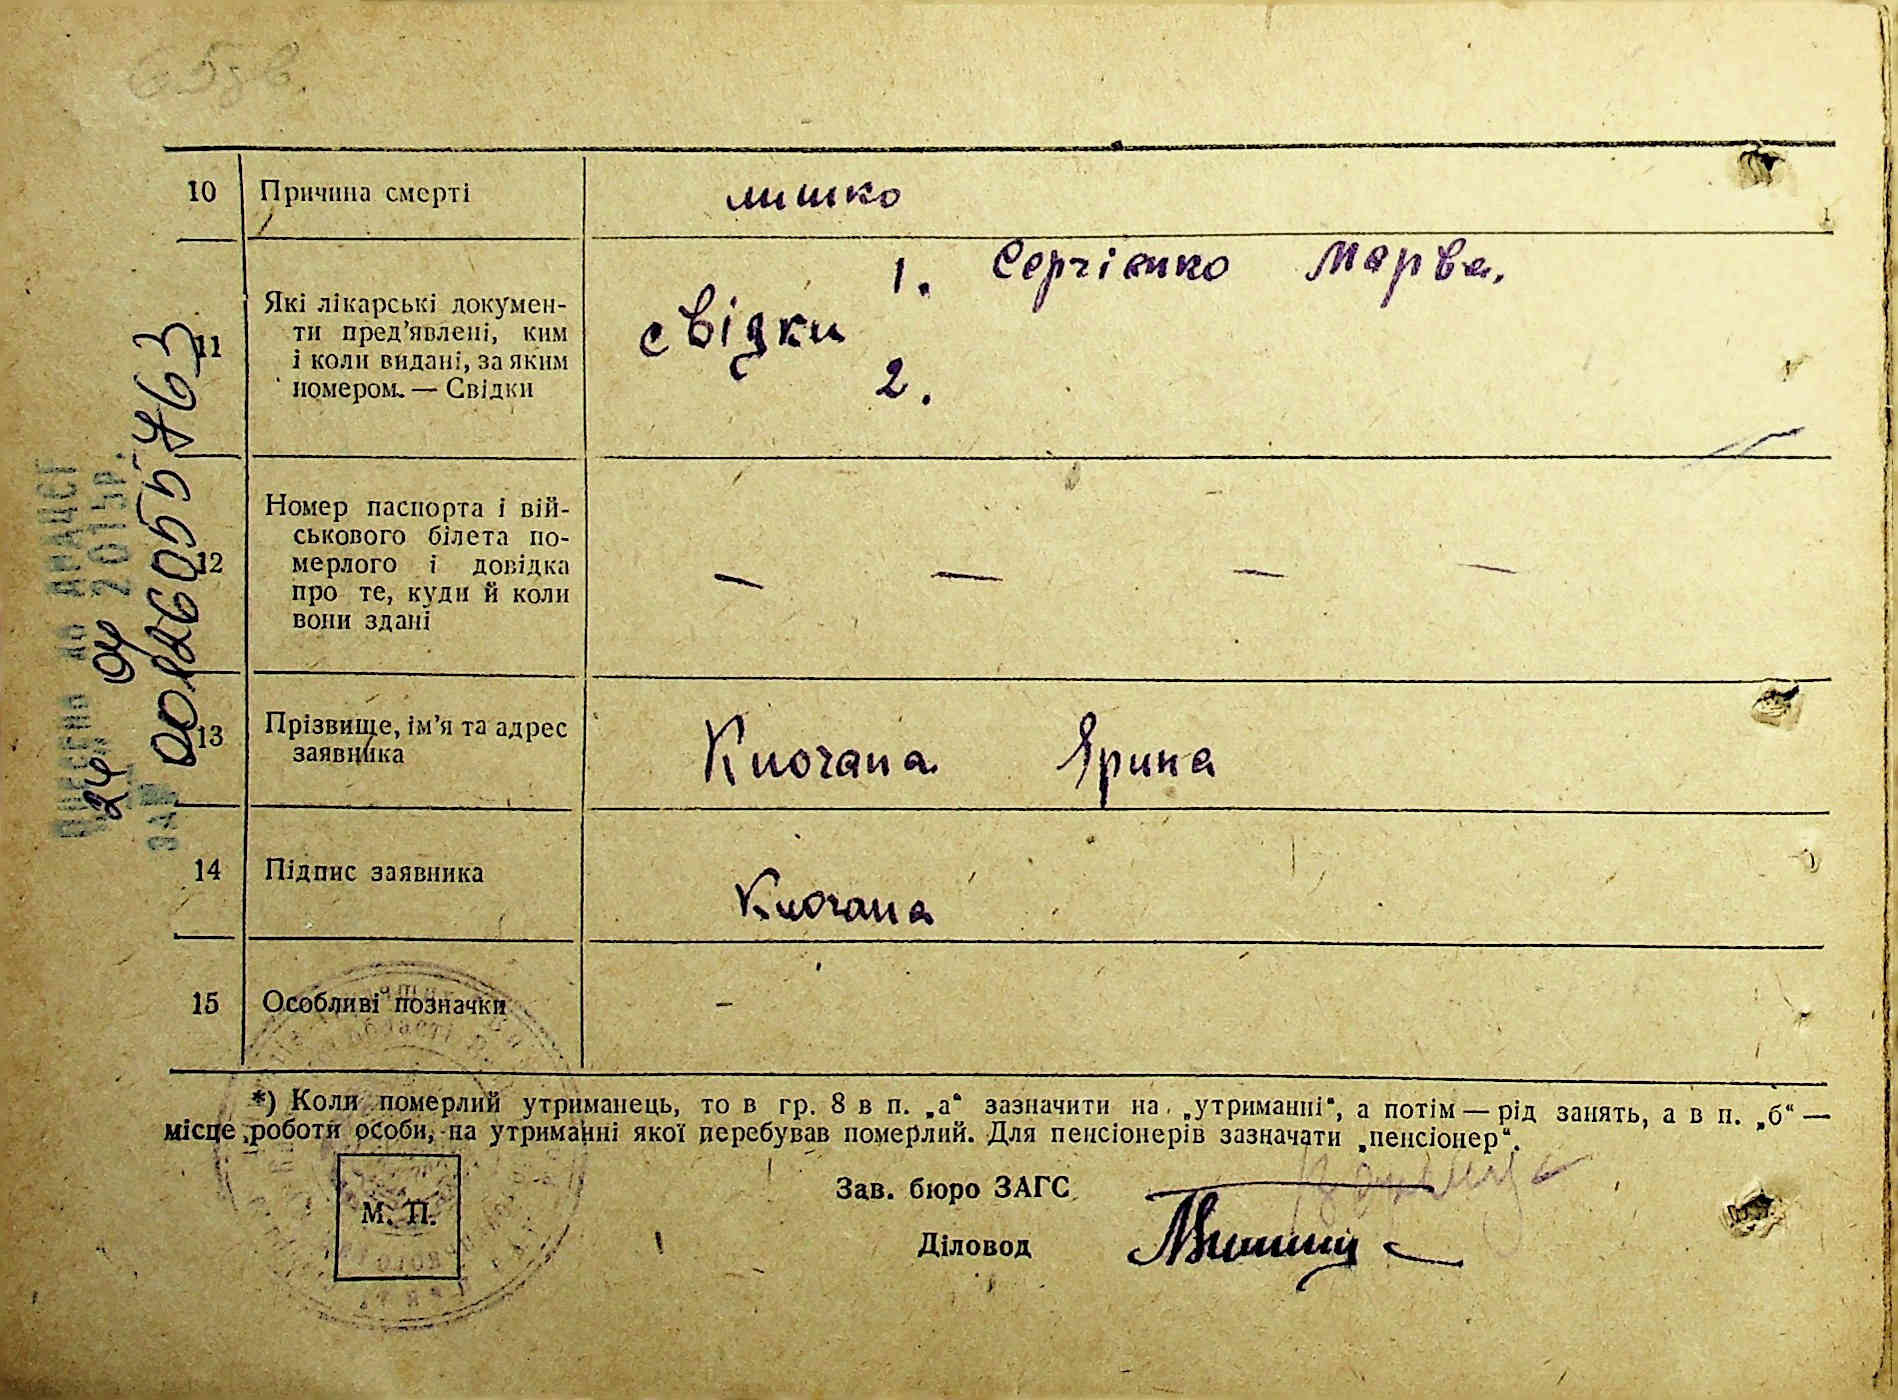 10 Причина смерті лишко
11 Які лікарські докумен-
ти пред'явлені, ким
і коли видані, за яким
номером. — Свідки
1. Сергієнко Марва.
свідки
2.
12 Номер паспорта і вій-
ськового білета по-
мерлого і довідка
про те, куди й коли
вони здані
— — — —
13 Прізвище, ім'я та адрес
заявника
Ключана Ярина
14 Підпис заявника
Ключана
15 Особливі позначки –
*) Коли померлий утриманець, то в гр. 8 в п. „а“ зазначити на „утриманні“, а потім — рід занять, а в п. „б“ —
місце роботи особи, на утриманні якої перебував померлий. Для пенсіонерів зазначати „пенсіонер“.
М. П.
Зав. бюро ЗАГС
Діловод
Внесено до ДРАЦСГ
24 04 2015р.
за № 00126055763